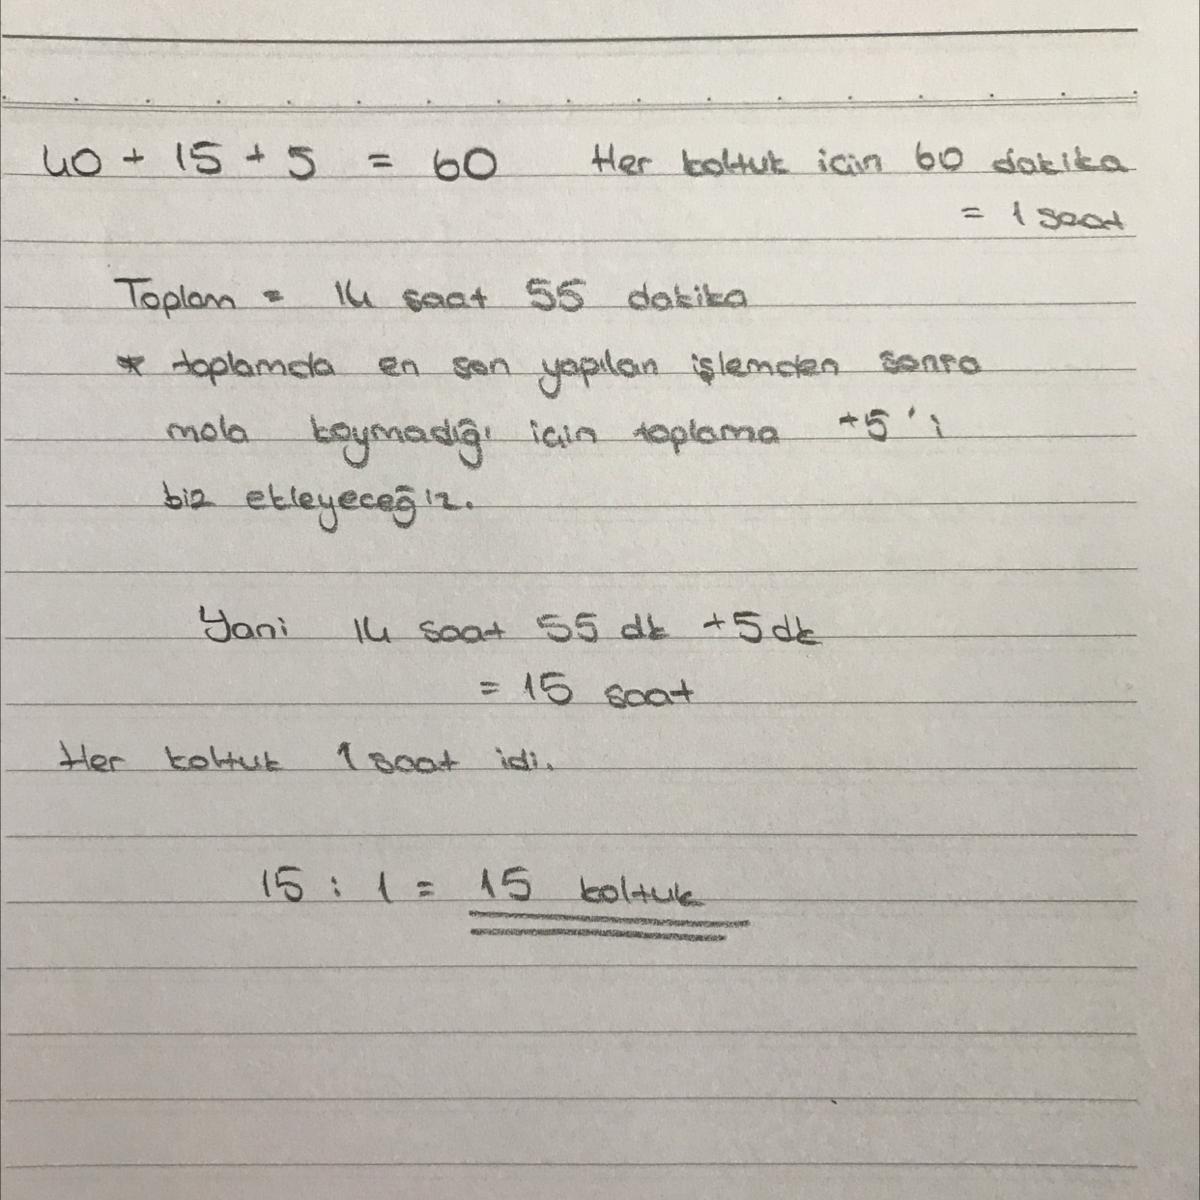 40 + 15 + 5 = 60 Her koltuk için 60 dakika
= 1 saat
Toplam = 14 saat 55 dakika
* toplamda en son yapılan işlemden sonra
mola koymadığı için toplama +5'i
biz ekleyeceğiz.
Yani 14 saat 55 dk +5dk
= 15 saat
Her koltuk 1 saat idi.
15 : 1 = 15 koltuk